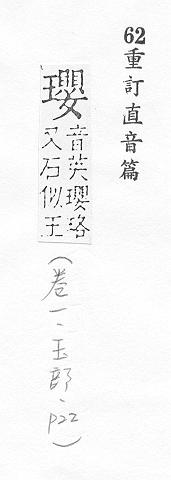 62重訂直音篇
瓔
音英瓔珞
又石似玉
(卷一、玉部、p22)